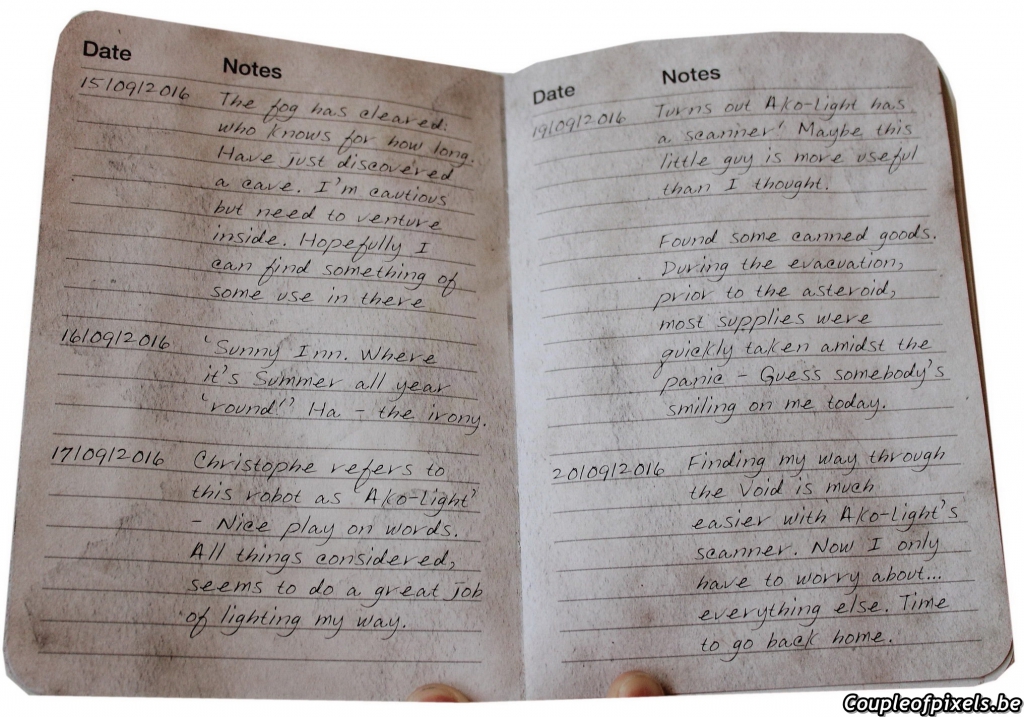 Date Notes
15/09/2016 The fog has cleared:
who knows for how long.
Have just discovered
a cave. I'm cautious
but need to venture
inside. Hopefully I
can find something of
some use in there
16/09/2016 'Sunny Inn. Where
it's Summer all year
'round!' Ha - the irony.
17/09/2016 Christophe refers to
this robot as 'Ako-light'
- Nice play on words.
All things considered,
seems to do a great job
of lighting my way.
Date Notes
19/09/2016 Turns out Ako-light has
a scanner! Maybe this
little guy is more useful
than I thought.
Found some canned goods.
During the evacuation,
prior to the asteroid,
most supplies were
quickly taken amidst the
panic - Guess somebody's
smiling on me today.
20/09/2016 Finding my way through
the Void is much
easier with Ako-light's
scanner. Now I only
have to worry about...
everything else. Time
to go back home.
Coupleofpixels.be